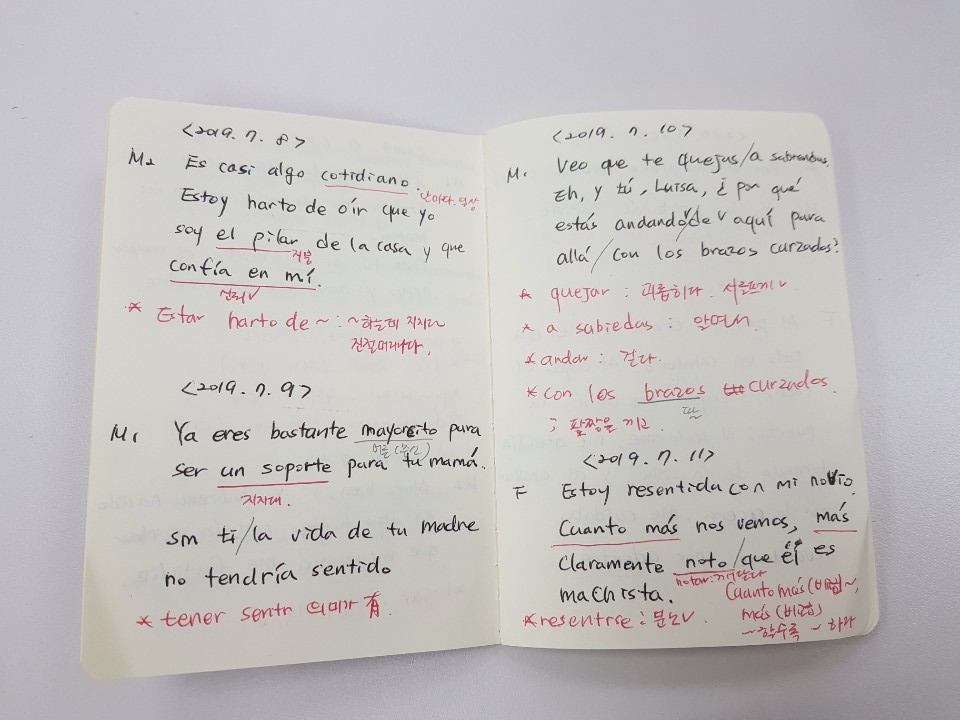 <2019. 7. 8>
M2 Es casi algo cotidiano.
Estoy harto de oír que yo
soy el pilar de la casa y que
confía en mí.
* Estar harto de ~ : ~하는데 지치다
진절머리나다.
<2019. 7. 9>
M1 Ya eres bastante mayorcito para
ser un soporte para tu mamá.
지지대.
sin ti/la vida de tu madre
no tendría sentido
* tener sentir 의미가 有.
<2019. 7. 10>
M1 Veo que te quejas/a sabiendas.
Eh, y tú, Luisa, ¿por qué
estás andando/de aquí para
allá/con los brazos curzados?
* quejar : 괴롭히다.
* a sabiedas : 알면서.
* andar : 걷다.
* con los brazos curzados
팔
; 팔짱을 끼고.
<2019. 7. 11>
F Estoy resentida con mi novio.
Cuanto más nos vemos, más
claramente noto/que él es
machista.
Cuanto más(비교급)~,
más(비교급)
~할수록 ~하다
* resentrse : 분노